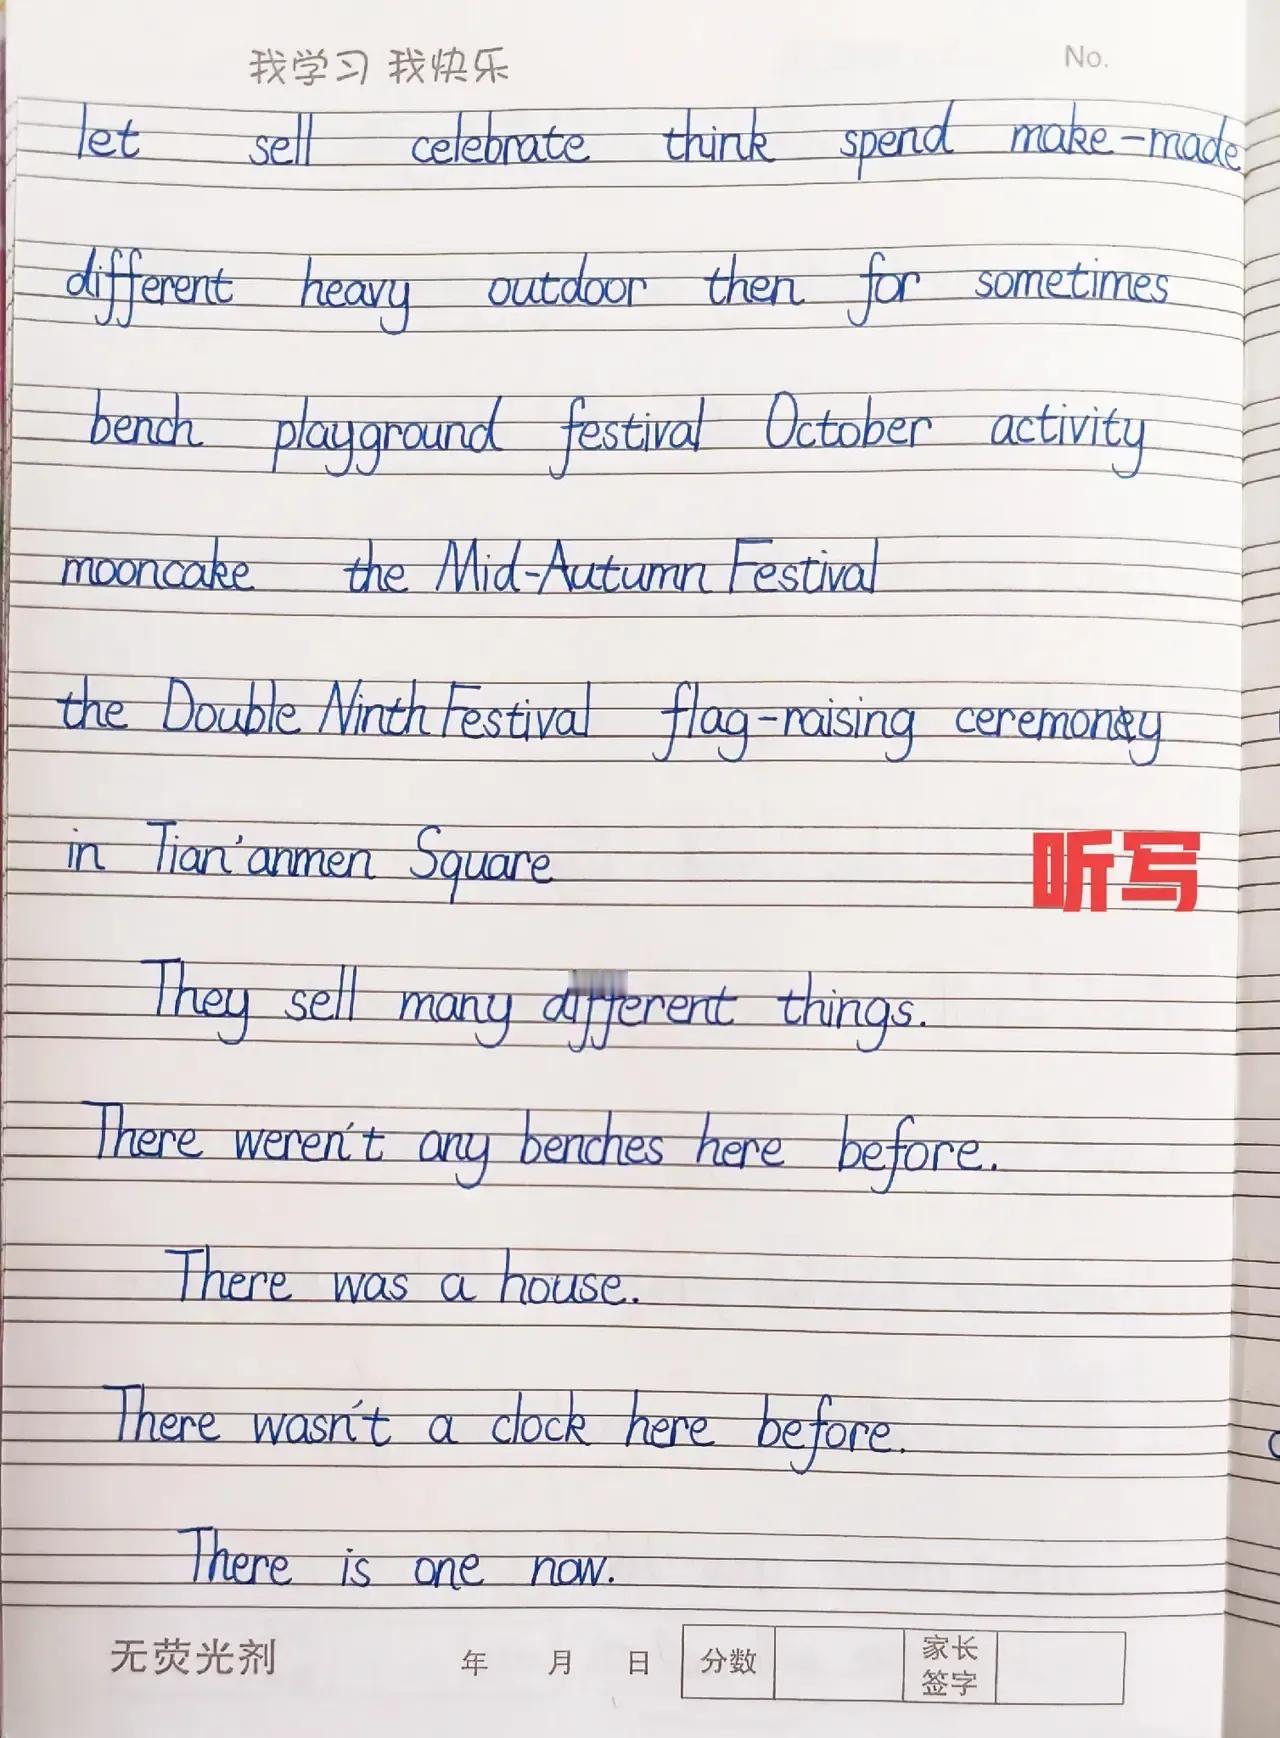 我学习 我快乐 No.
let sell celebrate think spend make-made
different heavy outdoor then for sometimes
bench playground festival October activity
mooncake the Mid-Autumn Festival
the Double Ninth Festival flag-raising ceremony
in Tian'anmen Square
听写
They sell many different things.
There weren't any benches here before.
There was a house.
There wasn't a clock here before.
There is one now.
无荧光剂 年 月 日 分数 家长签字